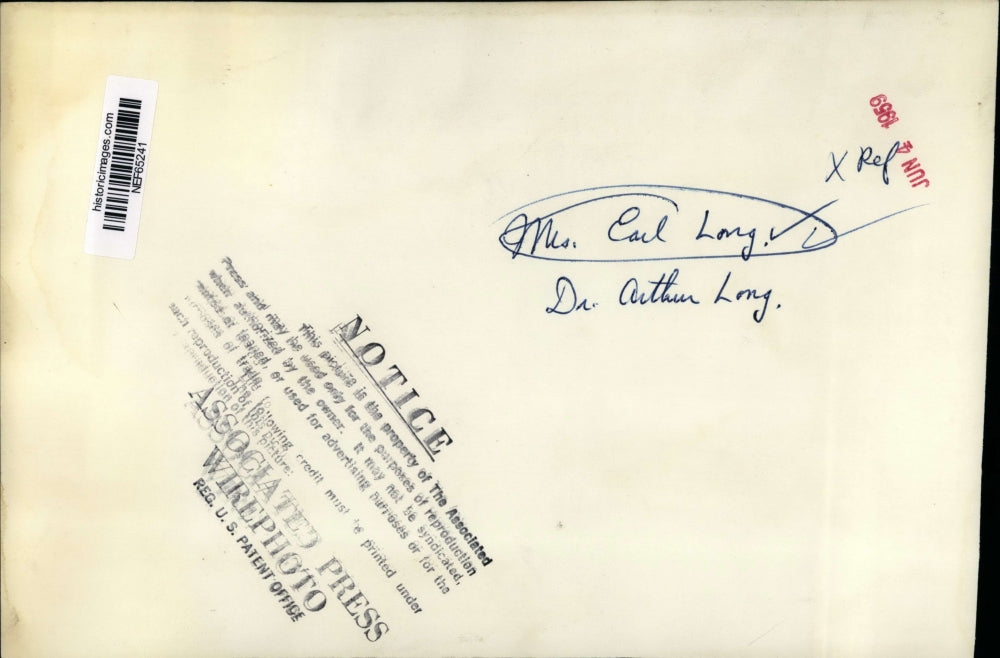 historicimages.com
NEF65241
JUN 4 1959
X Ref
Mrs. Earl Long.
Dr. Arthur Long.
NOTICE
This picture is the property of The Associated
Press and may be used only for the purposes of reproduction
when authorized by the owner. It may not be syndicated,
rented or loaned, or used for advertising purposes or for the
purposes of trade.
The following credit must be printed under
such reproduction of this picture:
ASSOCIATED PRESS
WIREPHOTO
REG. U. S. PATENT OFFICE